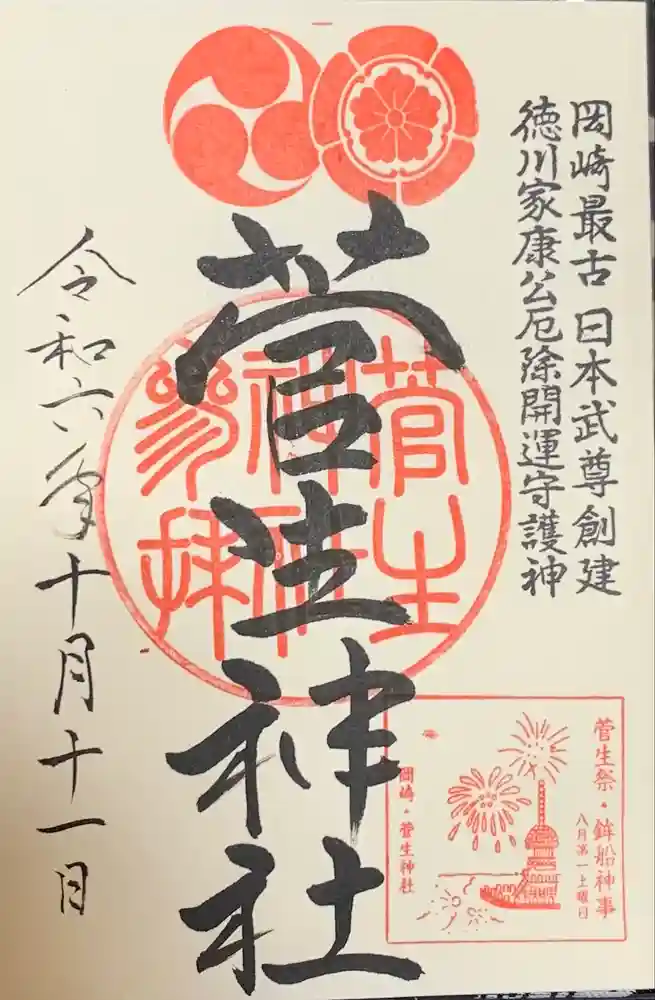 岡崎最古 日本武尊創建
徳川家康公厄除開運守護神
菅生神社
菅生
神社
参拝
令和六年十月十一日
菅生祭・鉾船神事
八月第一土曜日
岡崎・菅生神社